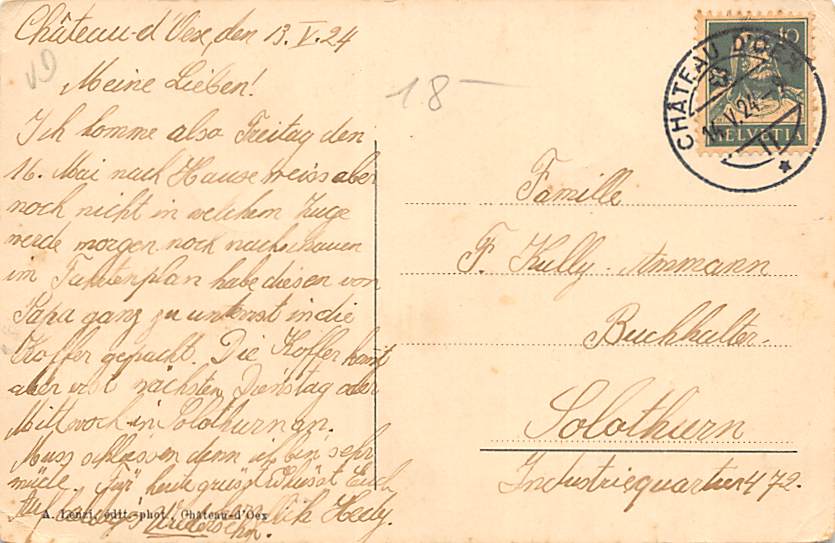 Château-d'Oex, den 13. V. 24
VD
Meine Lieben!
18 —
Ich komme also Freitag den
16. Mai nach Hause weiss aber
noch nicht in welchem Zuge
werde morgen noch nachschauen
im Fahrtenplan habe diesen von
Papa ganz zu unterst in die
Koffer gepackt. Die Koffer kommt
aber erst nächsten Dienstag oder
Mittwoch in Solothurn an.
Muss schliessen denn ich bin sehr
müde. Für heute grüsst & küsst Euch
Auf Wiedersehn. Hedy.
A. Lenzi, édit.-phot., Château-d'Oex
CHÂTEAU D'OEX
14. V. 24
10
HELVETIA
Familie
F. Kully-Ammann
Buchhalter.
Solothurn
Industriequartier 472.